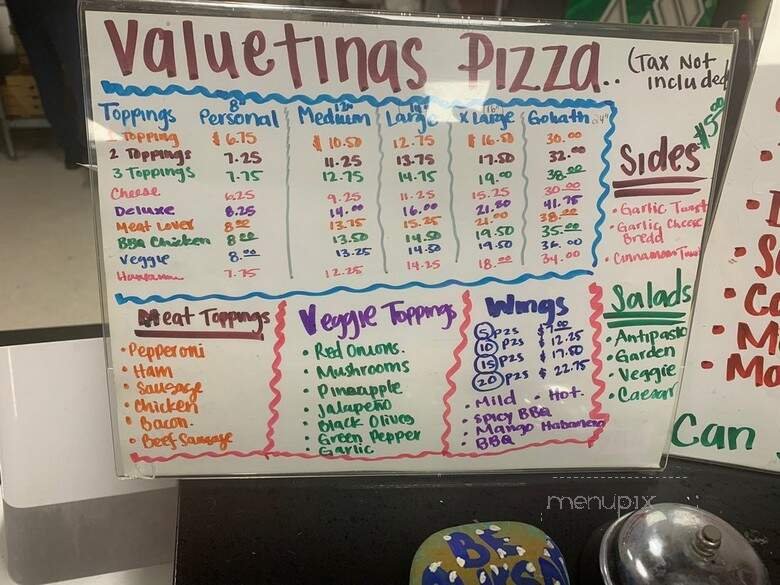 Valuetinas Pizza..
(Tax Not included
Toppings 8" Personal 12" Medium 14" Large 16" X Large Goliath 24"
Topping $6.75 $10.50 12.75 $16.50 30.00
2 Toppings 7.25 11.25 13.75 17.50 32.00
3 Toppings 7.75 12.75 14.75 19.00 38.00
Cheese 6.25 9.25 11.25 15.25 30.00
Deluxe 8.25 14.00 16.00 21.80 41.75
Meat Lover 8.00 13.75 15.25 21.00 38.00
BBQ Chicken 8.00 13.50 14.50 19.50 35.00
Veggie 8.00 13.25 14.50 19.50 36.00
Hawaiian 7.75 12.25 14.25 18.00 34.00
$5.00
Sides
• Garlic Twist
• Garlic Cheese Bredd
• Cinnamon Twist
Meat Toppings
• Pepperoni
• Ham
• Sausage
• Chicken
• Bacon.
• Beef Sausage
Veggie Toppings
• Red Onions.
• Mushrooms
• Pineapple
• Jalapeño
• Black Olives
• Green Pepper
• Garlic
Wings
5 pzs $7.00
10 pzs $12.25
15 pzs $17.50
20 pzs $22.75
• Mild • Hot.
• Spicy BBQ
• Mango Habanero
• BBQ
Salads
• Antipasto
• Garden
• Veggie
• Caesar
Can
menupix
BE